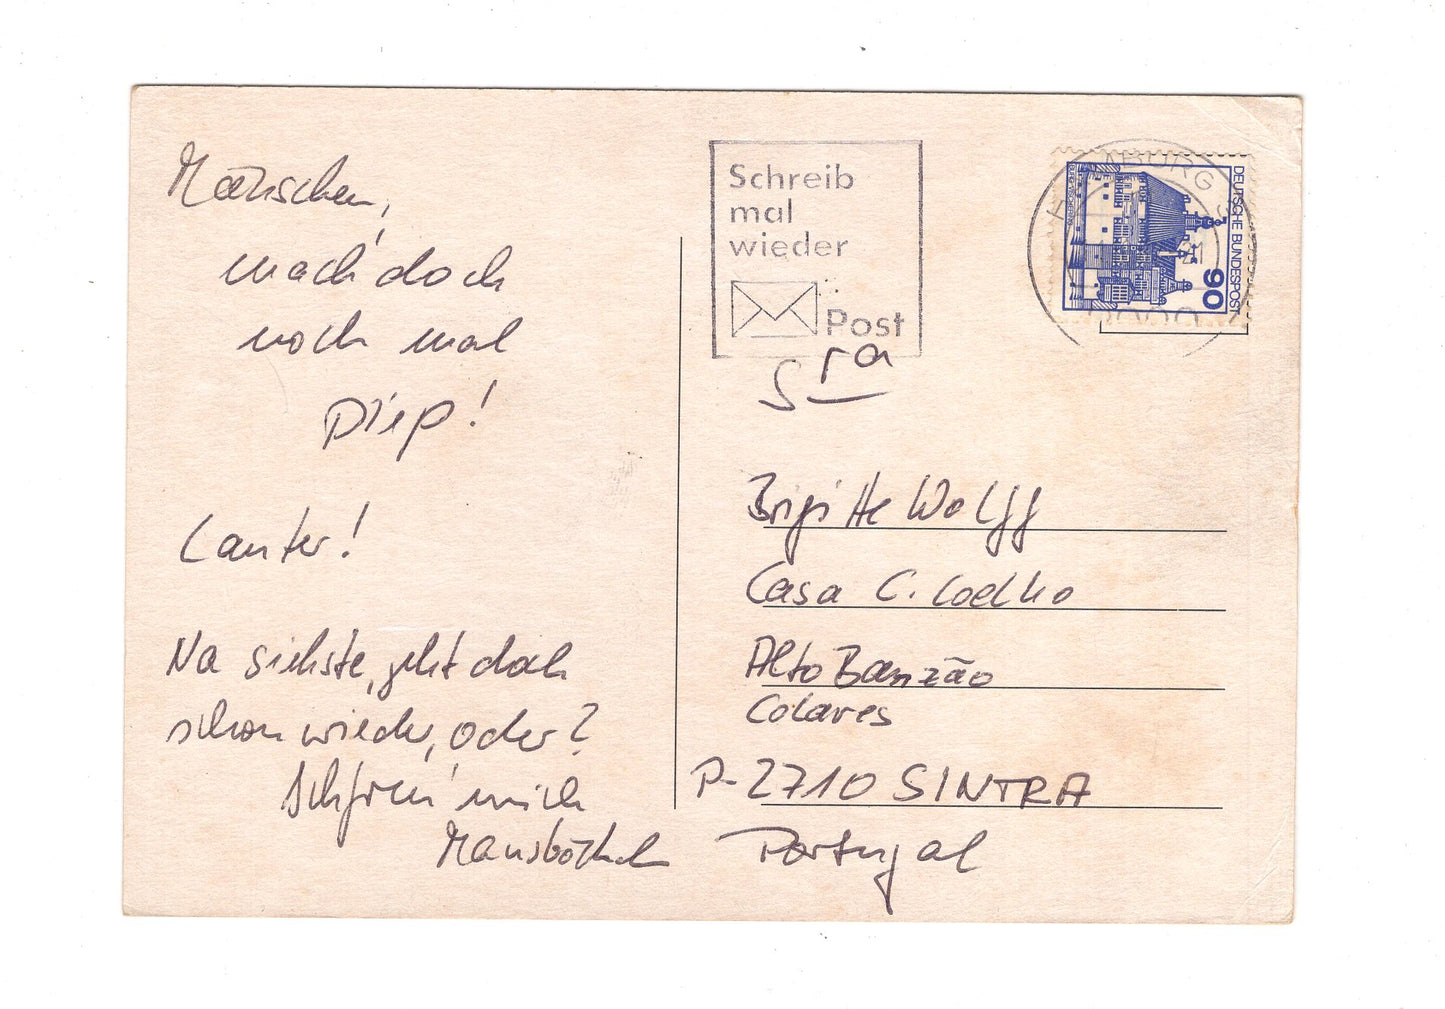 Mäuschen,
mach' doch
noch mal
Piep!
Lauter!
Na siehste, geht doch
schon wieder, oder?
Ich freu' mich
Mausböckchen
Schreib
mal
wieder
Post
DEUTSCHE BUNDESPOST
90
Sra
Brigitte Wolff
Casa C. Coelho
Alto Banzão
Colares
P-2710 SINTRA
Portugal